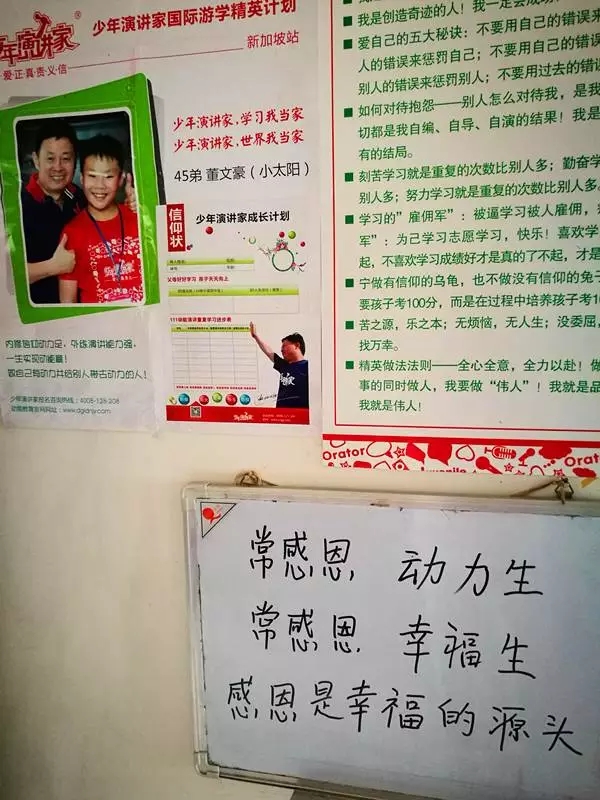 少年演讲家国际游学精英计划
年演讲家
爱·正·真·责·义·信
新加坡站
少年演讲家,学习我当家
少年演讲家,世界我当家
45弟 董文豪(小太阳)
信仰状
少年演讲家成长计划
父母好好学习 孩子天天向上
111动能演讲重复学习进步表
内修信仰动力足,外练演讲能力强,
一生实现动能赢!
致自己有动力并给别人带去动力的人!
少年演讲家报名咨询热线:4008-128-208
动能教育官网网址:www.dgldnjy.com
我是创造奇迹的人!我一定会成功
爱自己的五大秘诀:不要用自己的错误
来惩罚自己;不要用自己的错误
别人的错误来惩罚别人;不要用过去的错误
如何对待抱怨——别人怎么对待我,是我
切都是我自编、自导、自演的结果!我是
有的结局。
刻苦学习就是重复的次数比别人多;勤奋学
别人多;努力学习就是重复的次数比别人多
学习的"雇佣军":被逼学习被人雇佣,
军":为己学习志愿学习,快乐!喜欢学
起,不喜欢学习成绩好才是真的了不起,才是
宁做有信仰的乌龟,也不做没有信仰的兔子
要孩子考100分,而是在过程中培养孩子考1
苦之源,乐之本;无烦恼,无人生;没委屈,
找万幸。
精英做法法则——全心全意,全力以赴!做
事的同时做人,我要做"伟人"!我就是品
我就是伟人!
Orator
Orator
常感恩 动力生
常感恩 幸福生
感恩是幸福的源头